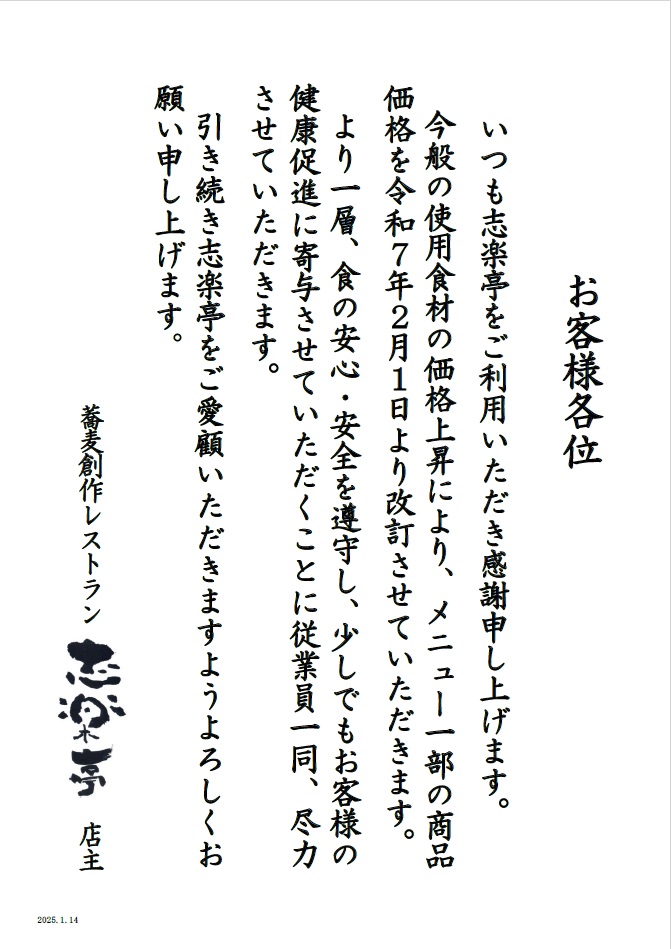 お客様各位
いつも志楽亭をご利用いただき感謝申し上げます。
今般の使用食材の価格上昇により、メニュー一部の商品
価格を令和７年２月１日より改訂させていただきます。
より一層、食の安心・安全を遵守し、少しでもお客様の
健康促進に寄与させていただくことに従業員一同、尽力
させていただきます。
引き続き志楽亭をご愛顧いただきますようよろしくお
願い申し上げます。
蕎麦創作レストラン 志楽亭 店主
2025.1.14